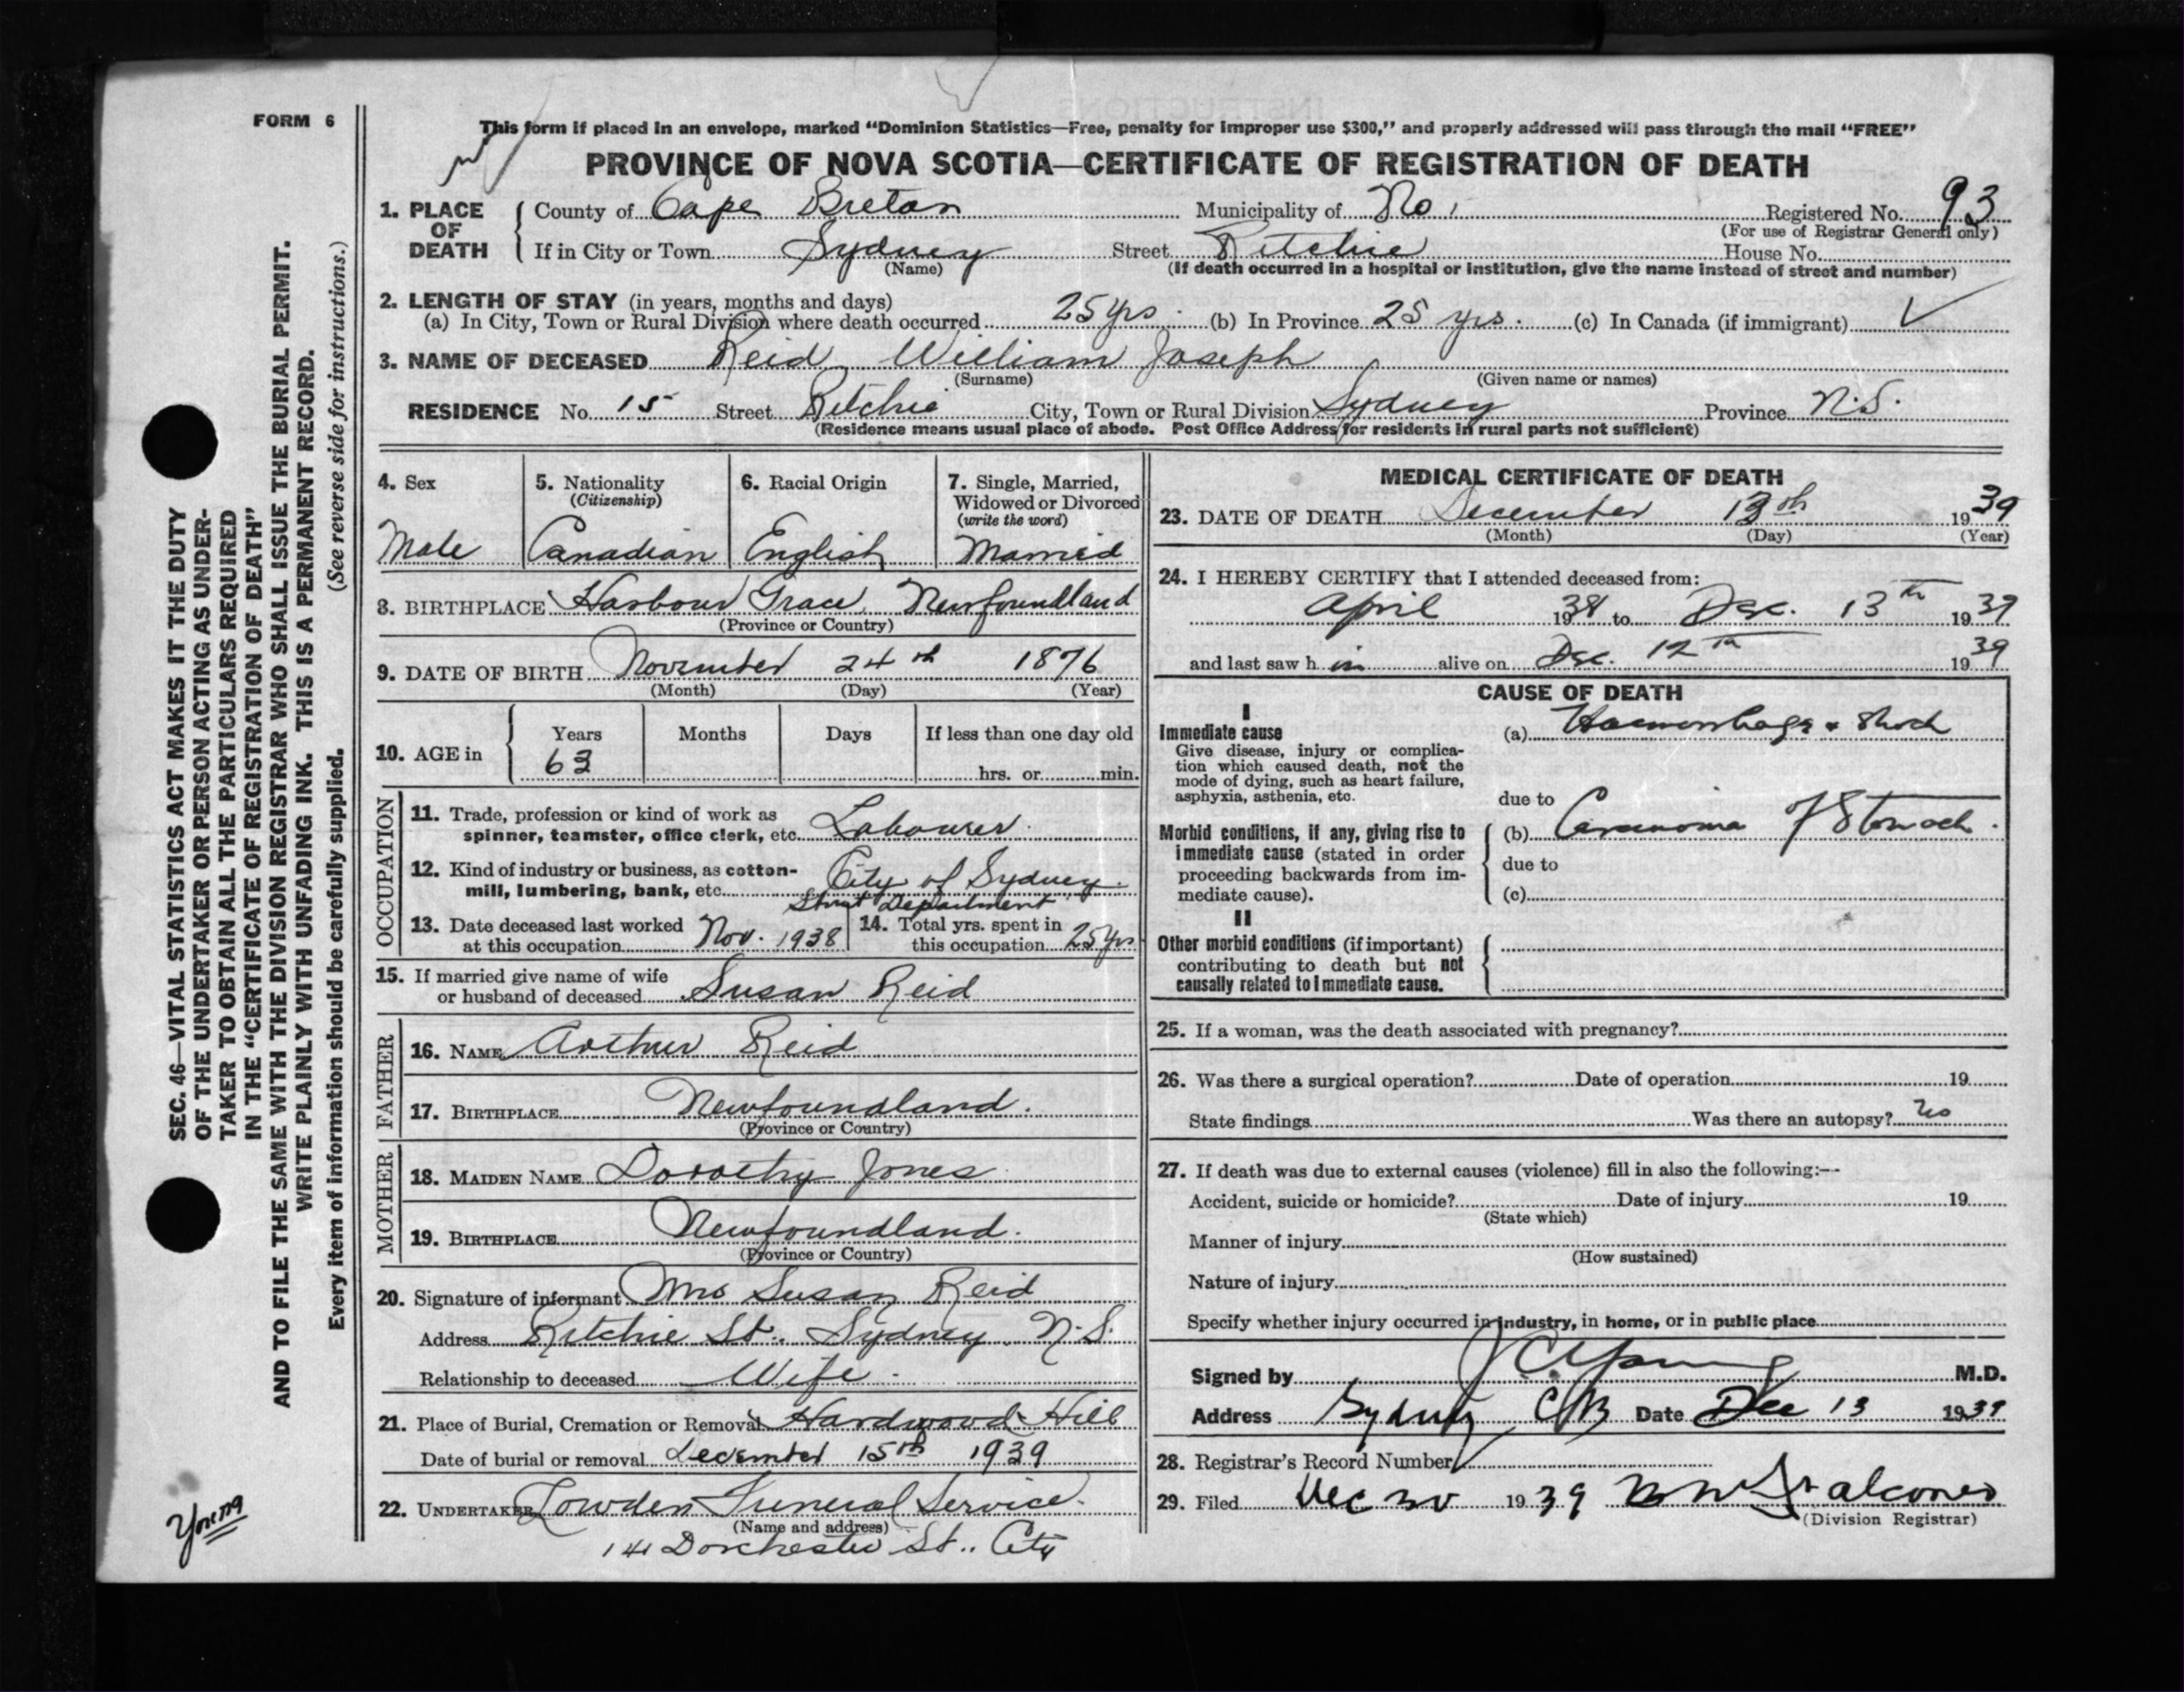 FORM 6
This form if placed in an envelope, marked "Dominion Statistics—Free, penalty for improper use $300," and properly addressed will pass through the mail "FREE"
PROVINCE OF NOVA SCOTIA—CERTIFICATE OF REGISTRATION OF DEATH
1. PLACE OF DEATH County of Cape Breton Municipality of No 1 Registered No. 93
(For use of Registrar General only)
If in City or Town Sydney Street Ritchie House No.
(Name) (If death occurred in a hospital or institution, give the name instead of street and number)
2. LENGTH OF STAY (in years, months and days)
(a) In City, Town or Rural Division where death occurred 25 yrs. (b) In Province 25 yrs. (c) In Canada (if immigrant)
3. NAME OF DECEASED Reid William Joseph
(Surname) (Given name or names)
RESIDENCE No. 15 Street Ritchie City, Town or Rural Division Sydney Province N.S.
(Residence means usual place of abode. Post Office Address for residents in rural parts not sufficient)
4. Sex Male
5. Nationality (Citizenship) Canadian
6. Racial Origin English
7. Single, Married, Widowed or Divorced (write the word) Married
8. BIRTHPLACE Harbour Grace, Newfoundland
(Province or Country)
9. DATE OF BIRTH November 24th 1876
(Month) (Day) (Year)
10. AGE in Years Months Days If less than one day old
63 hrs. or min.
OCCUPATION
11. Trade, profession or kind of work as
spinner, teamster, office clerk, etc. Labourer.
12. Kind of industry or business, as cotton-
mill, lumbering, bank, etc. City of Sydney.
Street Department
13. Date deceased last worked at this occupation Nov. 1938
14. Total yrs. spent in this occupation 25 yrs
15. If married give name of wife
or husband of deceased Susan Reid
FATHER
16. NAME Arthur Reid
17. BIRTHPLACE Newfoundland.
(Province or Country)
MOTHER
18. MAIDEN NAME Dorothy Jones
19. BIRTHPLACE Newfoundland.
(Province or Country)
20. Signature of informant Mrs Susan Reid
Address Ritchie St. Sydney N.S.
Relationship to deceased Wife.
21. Place of Burial, Cremation or Removal Hardwood Hill
Date of burial or removal December 15th 1939
22. UNDERTAKER Lowden Funeral Service.
(Name and address)
141 Dorchester St.. City
MEDICAL CERTIFICATE OF DEATH
23. DATE OF DEATH December 13th 1939
(Month) (Day) (Year)
24. I HEREBY CERTIFY that I attended deceased from:
April 1938 to Dec. 13th 1939
and last saw h im alive on Dec. 12th 1939
CAUSE OF DEATH
I
Immediate cause (a) Haemorrhage & Shock
Give disease, injury or complica-
tion which caused death, not the
mode of dying, such as heart failure,
asphyxia, asthenia, etc.
due to
Morbid conditions, if any, giving rise to (b) Carcinoma of Stomach.
immediate cause (stated in order
proceeding backwards from im- due to
mediate cause). (c)
II
Other morbid conditions (if important)
contributing to death but not
causally related to immediate cause.
25. If a woman, was the death associated with pregnancy?
26. Was there a surgical operation? Date of operation 19
State findings Was there an autopsy? No
27. If death was due to external causes (violence) fill in also the following:—
Accident, suicide or homicide? Date of injury 19
(State which)
Manner of injury
(How sustained)
Nature of injury
Specify whether injury occurred in industry, in home, or in public place
Signed by J C Young M.D.
Address Sydney CB Date Dec 13 1939
28. Registrar's Record Number
29. Filed Dec 30 1939 Falconer
(Division Registrar)
SEC. 46—VITAL STATISTICS ACT MAKES IT THE DUTY
OF THE UNDERTAKER OR PERSON ACTING AS UNDER-
TAKER TO OBTAIN ALL THE PARTICULARS REQUIRED
IN THE "CERTIFICATE OF REGISTRATION OF DEATH"
AND TO FILE THE SAME WITH THE DIVISION REGISTRAR WHO SHALL ISSUE THE BURIAL PERMIT.
WRITE PLAINLY WITH UNFADING INK. THIS IS A PERMANENT RECORD.
Every item of information should be carefully supplied. (See reverse side for instructions.)
Young